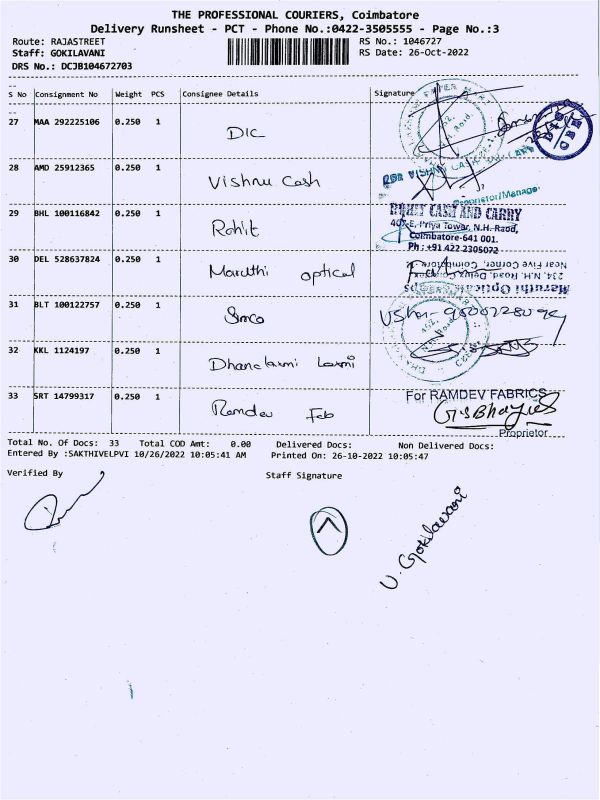 THE PROFESSIONAL COURIERS, Coimbatore
Delivery Runsheet - PCT - Phone No.:0422-3505555 - Page No.:3
Route: RAJASTREET RS No.: 1046727
Staff: GOKILAVANI RS Date: 26-Oct-2022
DRS No.: DCJB104672703
S No Consignment No Weight PCS Consignee Details Signature
27 MAA 292225106 0.250 1 DIC
28 AMD 25912365 0.250 1 Vishnu Cash
FOR VISHNU CASH
Proprietor/Manager
29 BHL 100116842 0.250 1 Rohit
ROHIT CASH AND CARRY
407-E, Priya Towar, N.H. Raod,
Coimbatore-641 001.
Ph : +91 422 2305072
30 DEL 528637824 0.250 1 Maruthi optical
Maruthi Opticals
234, N.H. Road,
Near Five Corner, Coimbatore
31 BLT 100122757 0.250 1 Simco
32 KKL 1124197 0.250 1 Dhanalaxmi Laxmi
33 SRT 14799317 0.250 1 Ramdev Fab
For RAMDEV FABRICS
Proprietor
Total No. Of Docs: 33 Total COD Amt: 0.00 Delivered Docs: Non Delivered Docs:
Entered By :SAKTHIVELPVI 10/26/2022 10:05:41 AM Printed On: 26-10-2022 10:05:47
Verified By Staff Signature
V. Gokilavani